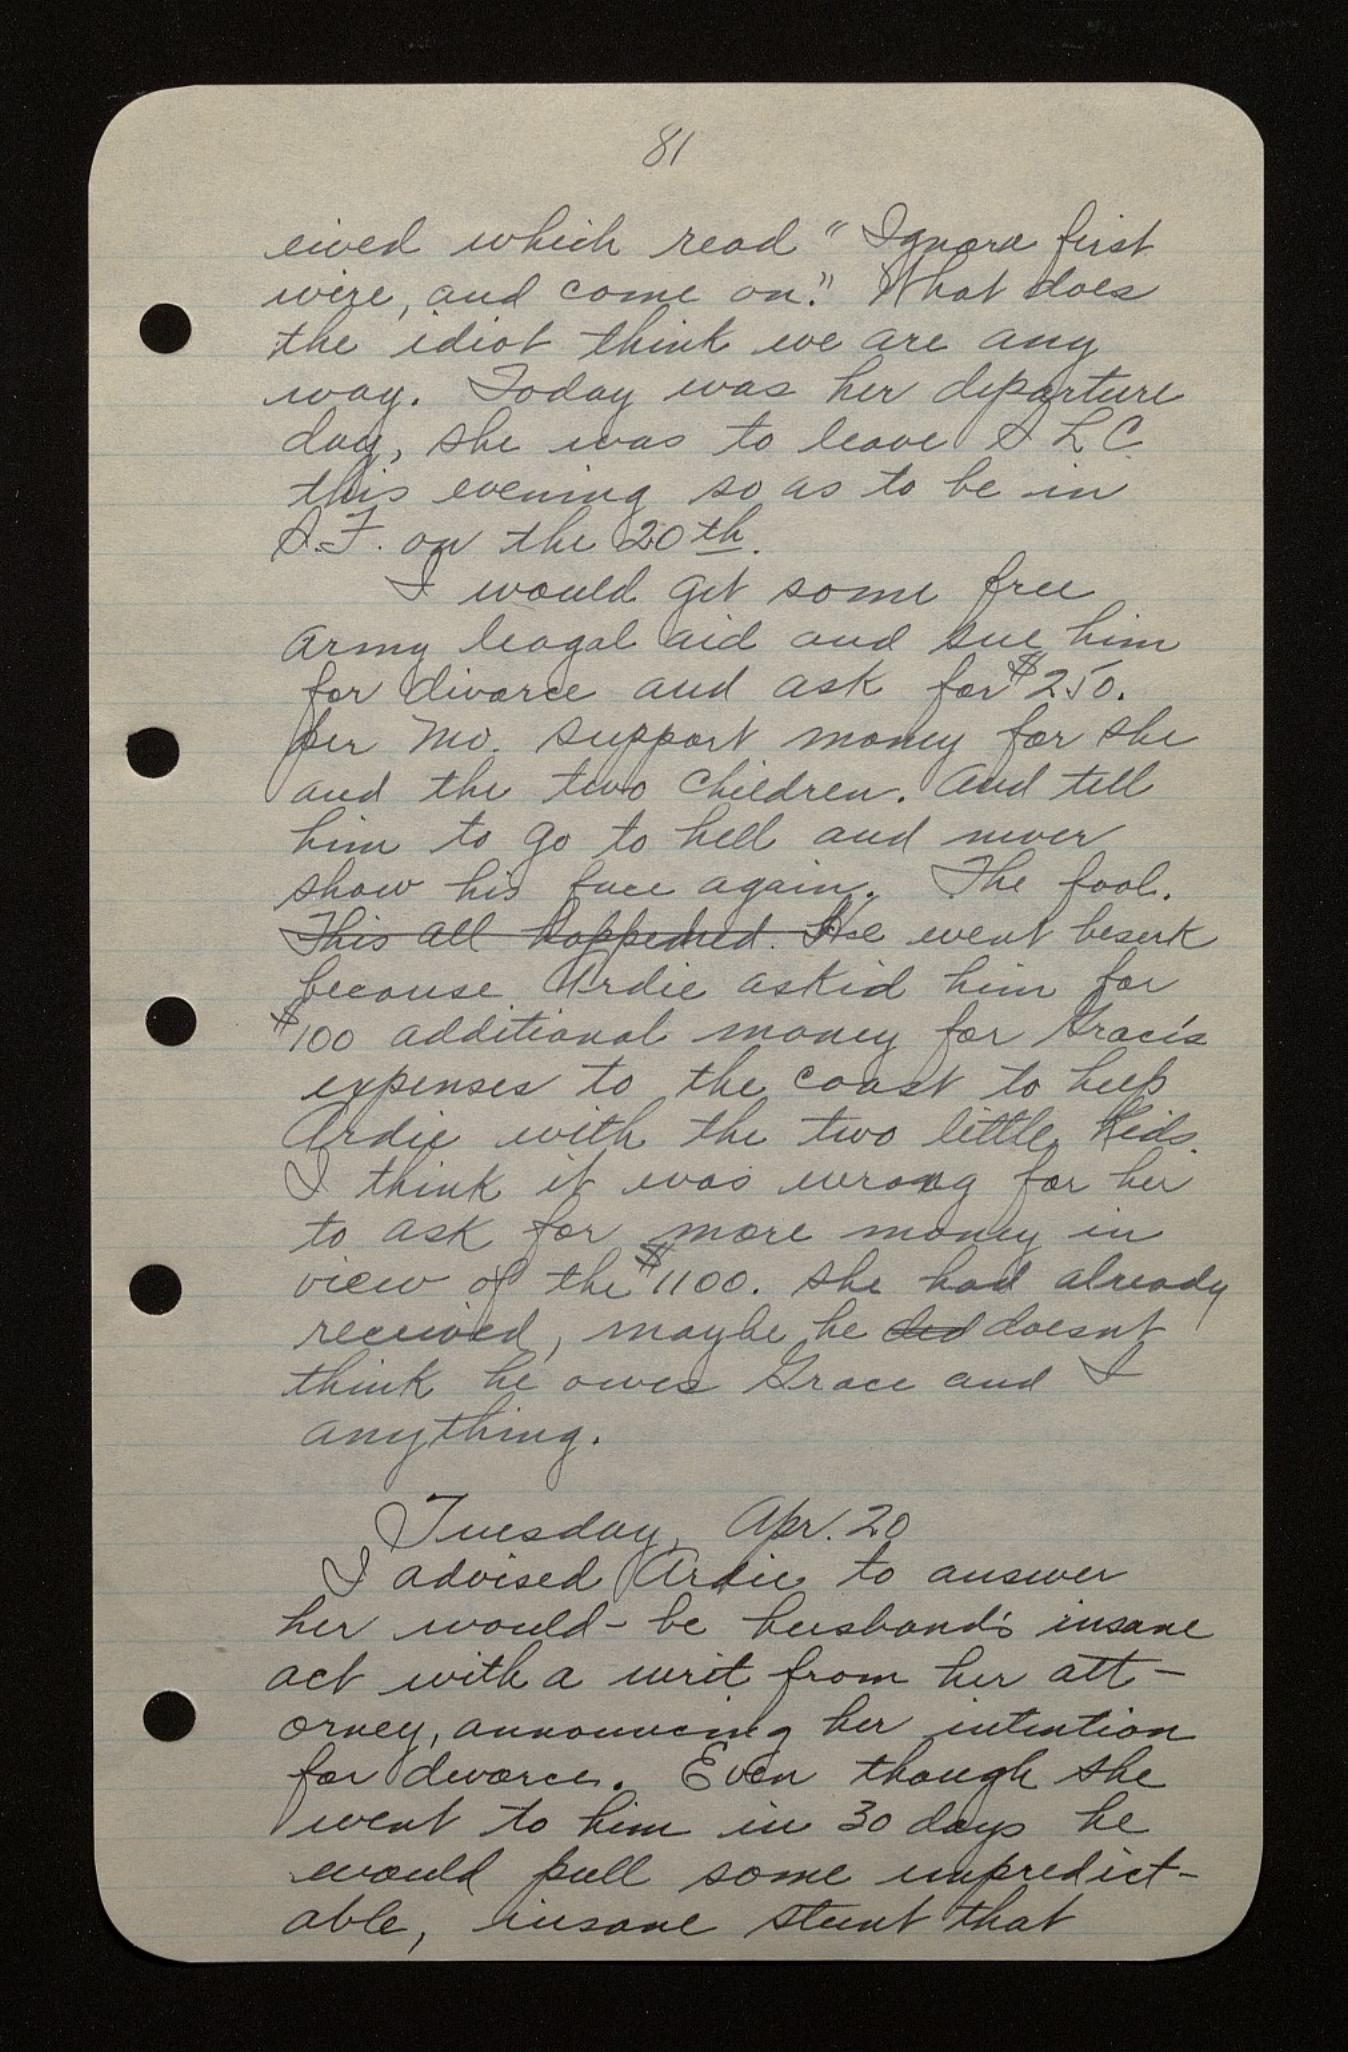 81
eived which read "Ignore first
wire, and come on." What does
the idiot think we are any
way. Today was her departure
day, she was to leave S L C
this evening so as to be in
S.F. on the 20th.
I would get some free
army leagal aid and sue him
for divorce and ask for $250.
per mo. support money for she
and the two children. And tell
him to go to hell and never
show his face again. The fool.
This all happened. He went beserk
because Ardie askid him for
$100 additional money for Grace's
expenses to the coast to help
Ardie with the two little kids.
I think it was wrong for her
to ask for more money in
view of the $1100. she had already
received, maybe he did doesnt
think he owes Grace and I
anything.
Tuesday, Apr. 20
I advised Ardie to answer
her would-be husband's insane
act with a writ from her att-
orney, announcing her intention
for divorce. Even though she
went to him in 30 days he
would pull some unpredict-
able, insane stunt that